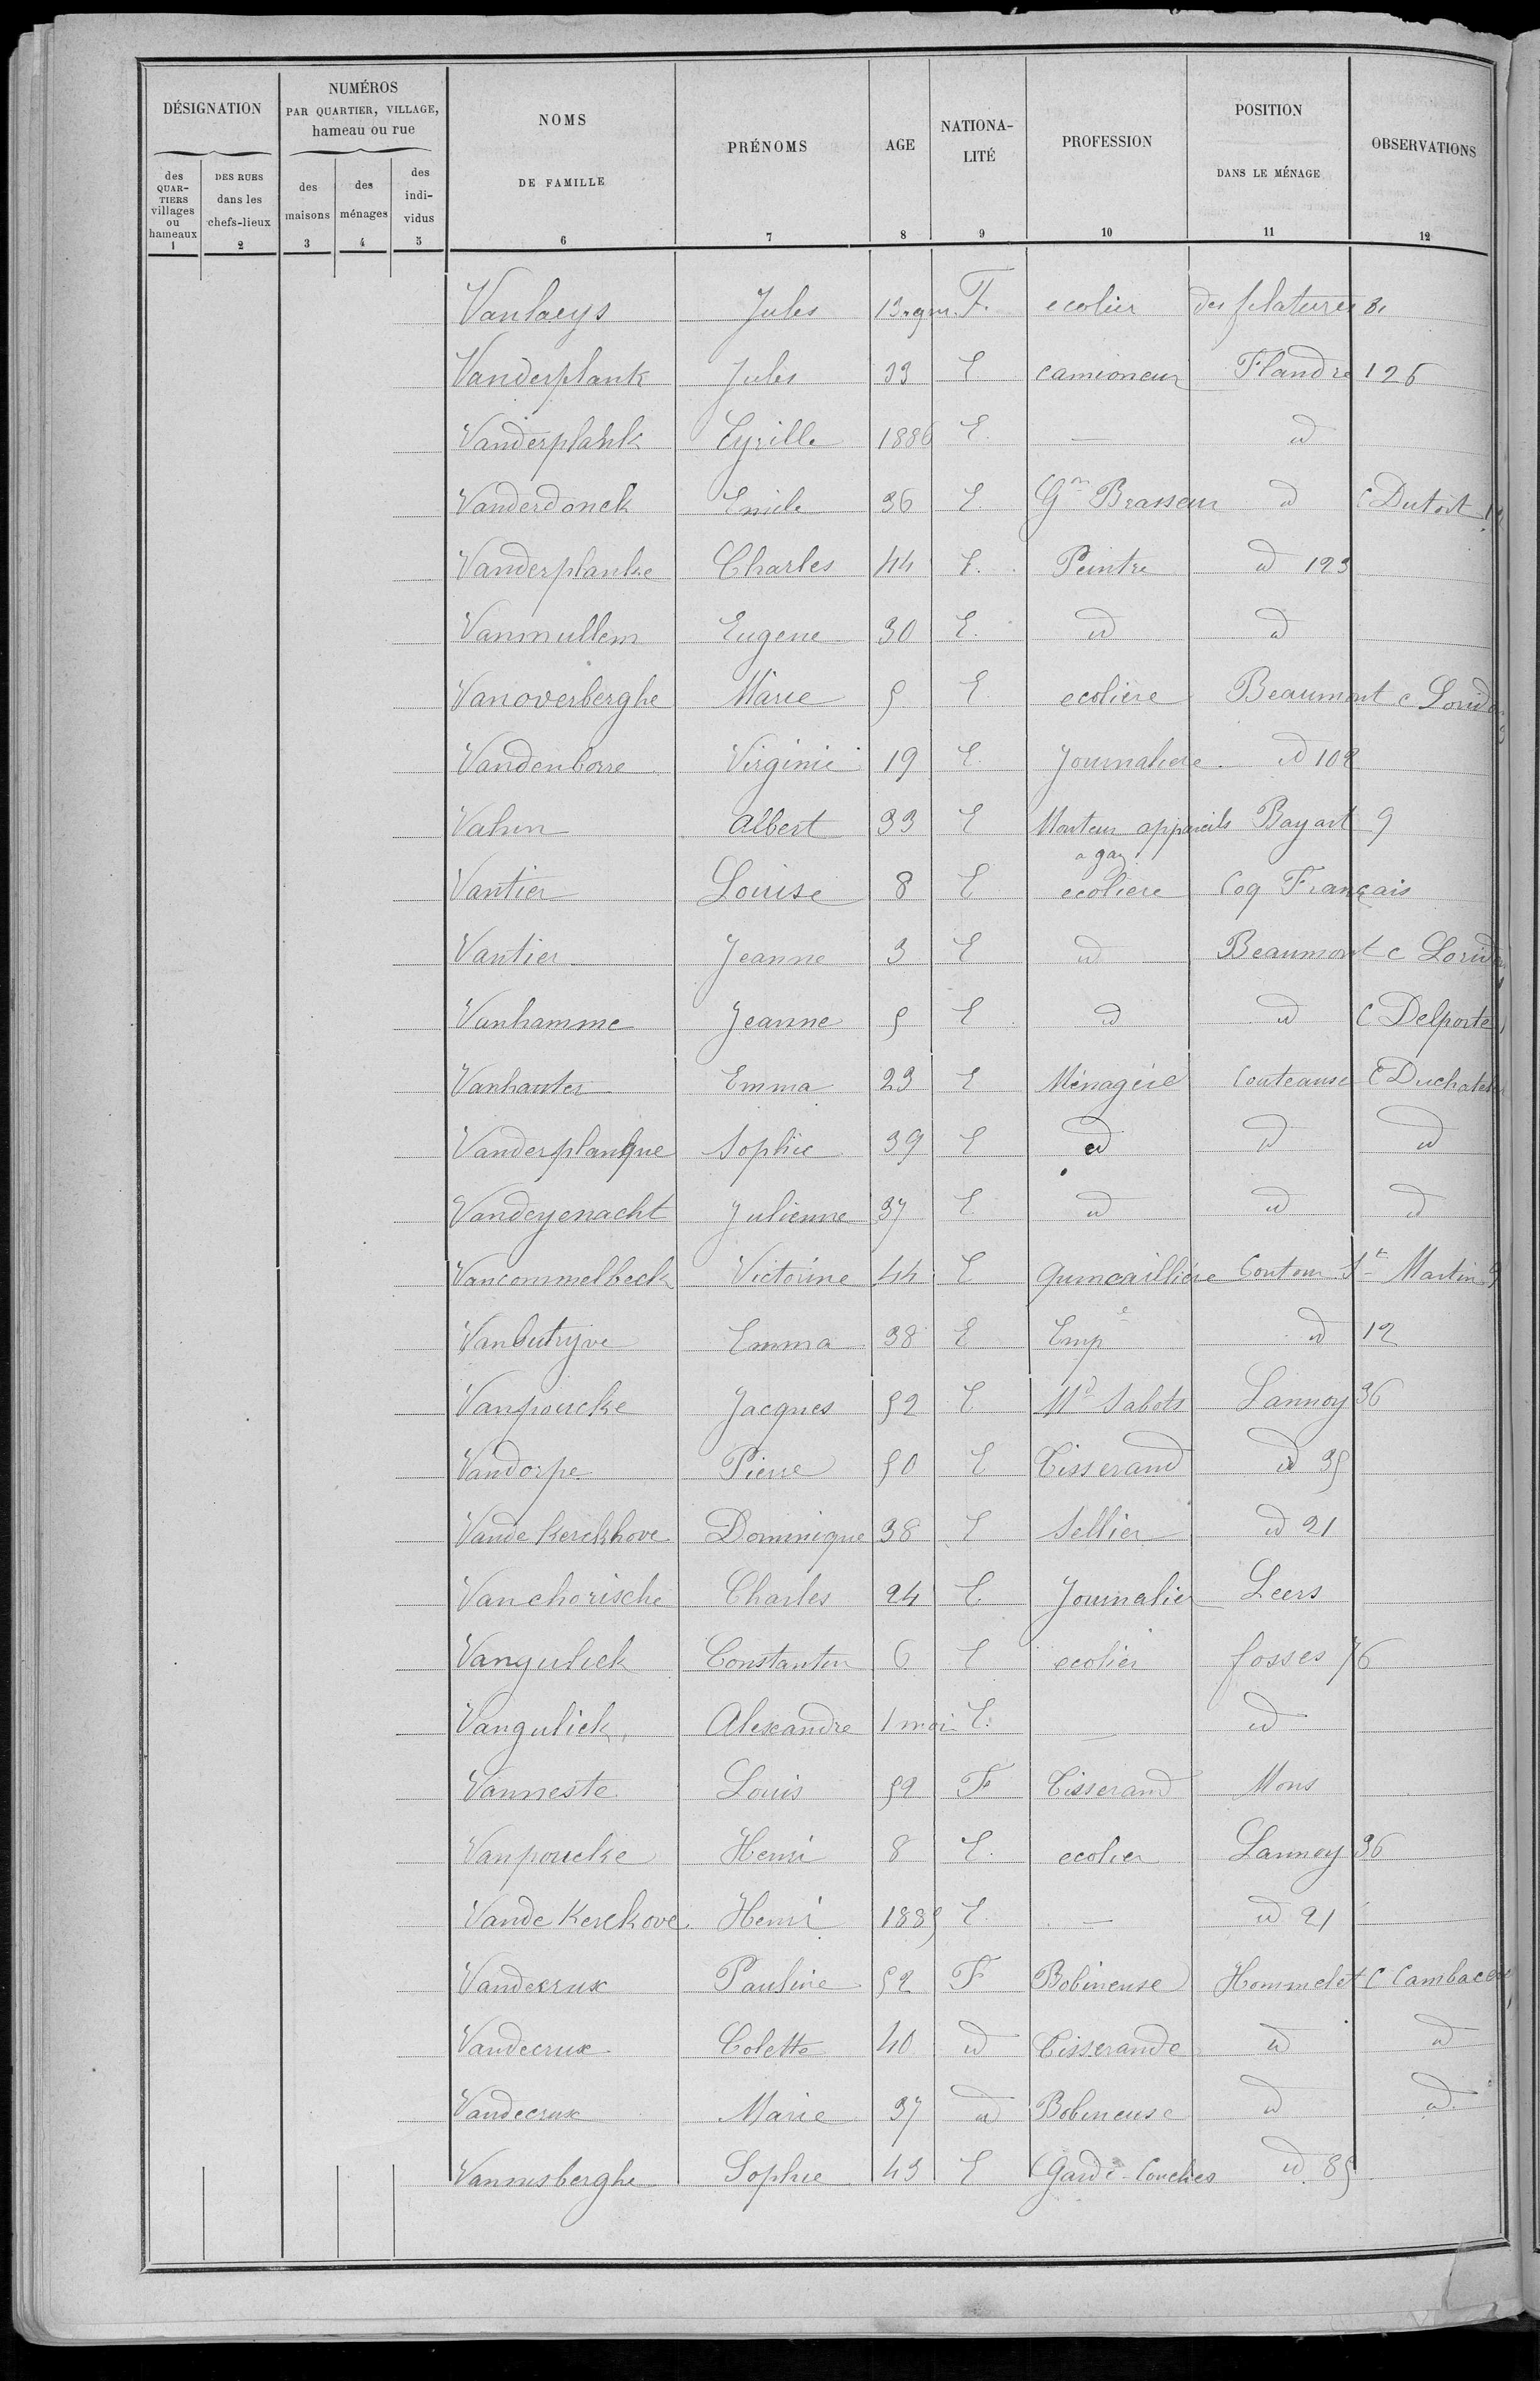 DÉSIGNATION NUMÉROS PAR QUARTIER, VILLAGE, hameau ou rue NOMS DE FAMILLE PRÉNOMS AGE NATIONA-LITÉ PROFESSION POSITION DANS LE MÉNAGE OBSERVATIONS
des QUAR-TIERS villages ou hameaux DES RUES dans les chefs-lieux des maisons des ménages des indi-vidus
1 2 3 4 5 6 7 8 9 10 11 12
Vanlaeys Jules 13 F. ecolier des filatures 81
Vanderplank Jules 33 E camioneur Flandre 126
Vanderplank Cyrille 1886 E. — id
Vanderdonck Emile 36 E. Gon Brasseur id C Dutoit
Vanderplanke Charles 44 E. Peintre id 123
Vanmullem Eugene 30 E. id id
Vanoverberghe Marie 5 E ecoliere Beaumont c Lorid
Vandenborre Virginie 19 E. Journaliere id 102
Vahin Albert 33 E Monteur appareils a gaz Bayart 9
Vantier Louise 8 E ecoliere Coq Français
Vantier Jeanne 3 E id Beaumont c Lorid
Vanhamme Jeanne 5 E id id C Delporte
Vanhauter Emma 23 E Ménagère Couteause C Duchatel
Vanderplanque Sophie 39 E id id id
Vandeyenacht Julienne 37 E id id id
Vancommelbeck Victorine 44 E Quincaillière Contour St Martin 9
Vanbutryve Emma 38 E Empe id 12
Vanpoucke Jacques 52 E Md Sabots Lannoy 36
Vandorpe Pierre 50 E Tisserand id 35
Vande Kerckhove Dominique 38 E Sellier id 21
Vanchorische Charles 24 E. Journalier Leers
Vangulick Constantin 6 E ecolier fosses 76
Vangulick Alexandre 1 moi E. — id
Vanneste Louis 59 F Tisserand Mons
Vanpoucke Henri 8 E. ecolier Lannoy 36
Vande Kerckove Henri 1885 E. — id 21
Vandecrux Pauline 52 F Bobineuse Hommelet C Cambacé
Vandecrux Colette 40 id Tisserande id id
Vandecrux Marie 37 id Bobineuse id id
Vannesberghe Sophie 43 E Garde-Couches id 85